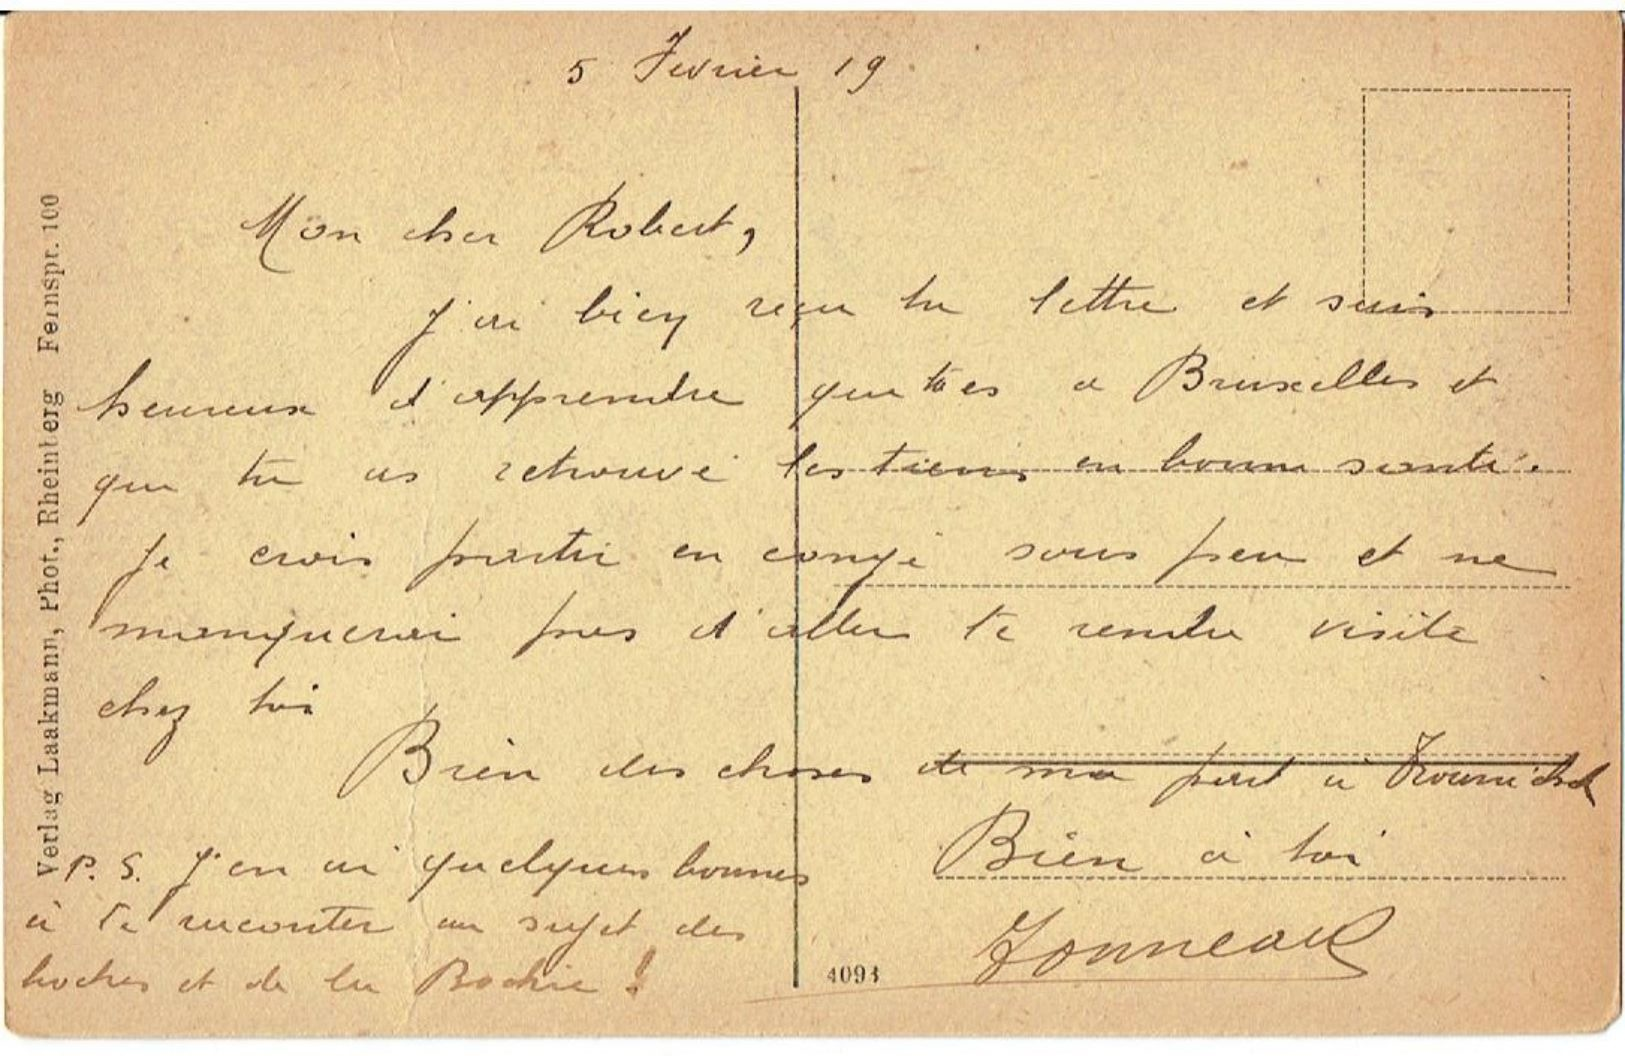 5 Fevrier 19
Mon cher Robert,
J'ai bien reçu ta lettre et suis
heureux d'apprendre que tu es a Bruxelles et
que tu as retrouvé les tiens en bonne santé.
Je crois partir en congé sous peu et ne
manquerai pas d'aller te rendre visite
chez toi
Bien des choses de ma part à
Bien à toi
P. S. J'en ai quelques bonnes
à te raconter au sujet des
boches et de la Bochie !
Verlag Laakmann, Phot., Rheinberg Fernspr. 100
4093